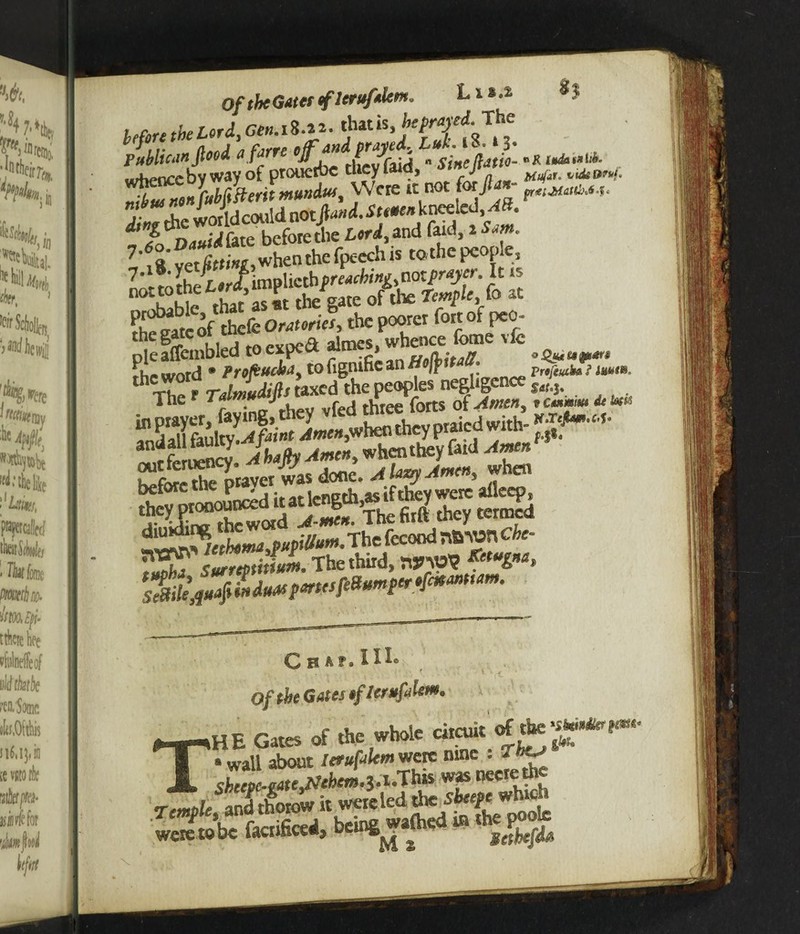 Of the Gates of Ierusalem. LIB.2 83
before the Lord, Gen.18.22. that is, he prayed. The
Publican stood a farre off and prayed. Luk. 18. 13.
whence by way of prouerbe they said, " Sine statio-
nibus non subsisterit mundus, Were it not for stan-
ding the world could not stand. Steuen kneeled, Act.
7.60. Dauid sate before the Lord, and said, 2 Sam.
7.18. yet sitting, when the speech is to the people,
not to the Lord, implieth preaching, not prayer. It is
probable, that as at the gate of the Temple, so at
the gate of these Oratories, the poorer sort of peo-
ple assembled to expect almes, whence some vse
the word o Proseucha, to signifie an Hospitall.
The p Talmudists taxed the peoples negligence
in prayer, saying, they vsed three sorts of Amen,
and all faulty. A faint Amen, when they praied with-
out feruency. A hasty Amen, when they said Amen
before the prayer was done. A lazy Amen, when
they pronounced it at length, as if they were asleep,
diuiding the word A-men. The first they termed
יתומה Iethoma, pupillum. The second חטופה Che-
tupha, Surreptitium. The third, קטועה Ketugna,
Sectile, quasi in duas partes sectum per oscitantiam.
n R Iuda in lib.
Musar. vide Drus.
præt. Matth.6.5.
o Qua te quære
Proseucha? Iuuen.
Sat.3.
p Caninius de locis
N.Testam.c.5.
p.38.
CHAP. III.
Of the Gates of Ierusalem.
THE Gates of the whole circuit of the
a wall about Ierusalem were nine : The
sheepe-gate, Nehem.3.1. This was neere the
Temple, and thorow it were led the Sheepe which
were to be sacrificed, being washed in the poole
M 2 Bethesda
a Sheindler